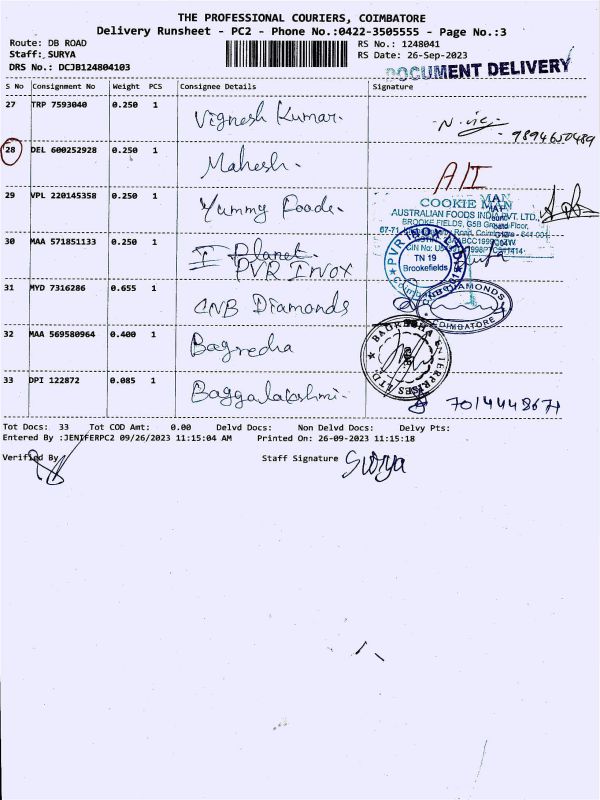 THE PROFESSIONAL COURIERS, COIMBATORE
Delivery Runsheet - PC2 - Phone No.:0422-3505555 - Page No.:3
Route: DB ROAD
RS No.: 1248041
Staff: SURYA
RS Date: 26-Sep-2023
DRS No.: DCJB124804103
DOCUMENT DELIVERY
S No Consignment No Weight PCS Consignee Details Signature
27 TRP 7593040 0.250 1 Vignesh Kumar.
9894650489
28 DEL 600252928 0.250 1 Mahesh. A/I
29 VPL 220145358 0.250 1 Yummy Foods.
COOKIE MAN
AUSTRALIAN FOODS INDIA PVT. LTD.,
BROOKE FIELDS, G5B Ground Floor,
30 MAA 571851133 0.250 1 I Planet.
PVR Inox
PVR INOX LTD
TN 19
Brookefields
31 MYD 7316286 0.655 1 CNB Diamonds
CNB DIAMONDS
COIMBATORE
32 MAA 569580964 0.400 1 Bagrecha
BAGRECHA ENTERPRISES LTD.
33 DPI 122872 0.085 1 Baggalakshmi.
7014448671
Tot Docs: 33 Tot COD Amt: 0.00 Delvd Docs: Non Delvd Docs: Delvy Pts:
Entered By :JENIFERPC2 09/26/2023 11:15:04 AM Printed On: 26-09-2023 11:15:18
Verified By
Staff Signature Surya